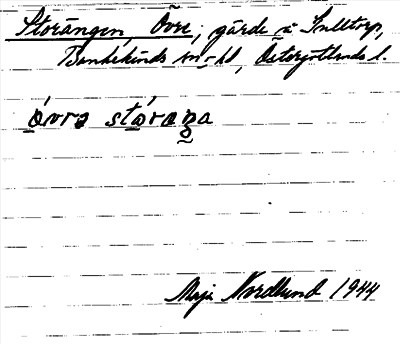 Storängen, Övre, gärde å Smltorp,
Bankekinds sn o hd, Östergötlands l.
óvrə stóraŋa
Maja Nordlund 1944